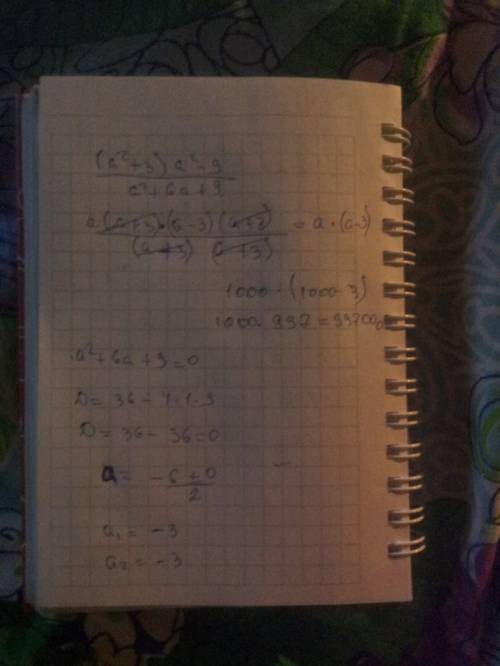 (a²+3) a²-9
a²+6a+9
a(a+3)·(a-3)(a+3) = a·(a-3)
(a+3) (a+3)
1000·(1000-3)
1000·997=997000
a²+6a+9=0
D=36-4·1·9
D=36-36=0
a= -6+0
2
a₁=-3
a₂=-3